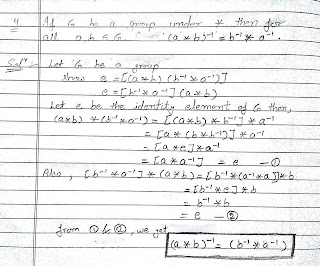 4 If G be a group under * then for
all a,b ∈ G. (a * b)⁻¹ = b⁻¹ * a⁻¹.
Solⁿ:- Let G be a group
e = [(a*b) (b⁻¹*a⁻¹)]
e = [b⁻¹*a⁻¹] (a*b)
Let e be the identity element of G then,
(a*b) * (b⁻¹*a⁻¹) = [(a*b) * b⁻¹] * a⁻¹
= [a * (b*b⁻¹)] * a⁻¹
= [a*e] * a⁻¹
= [a*a⁻¹] = e —①
Also, [b⁻¹*a⁻¹] * (a*b) = [b⁻¹*(a⁻¹*a)]*b
= [b⁻¹*e] * b
= b⁻¹*b
= e —②
from ① & ②, we get
(a*b)⁻¹ = (b⁻¹*a⁻¹)